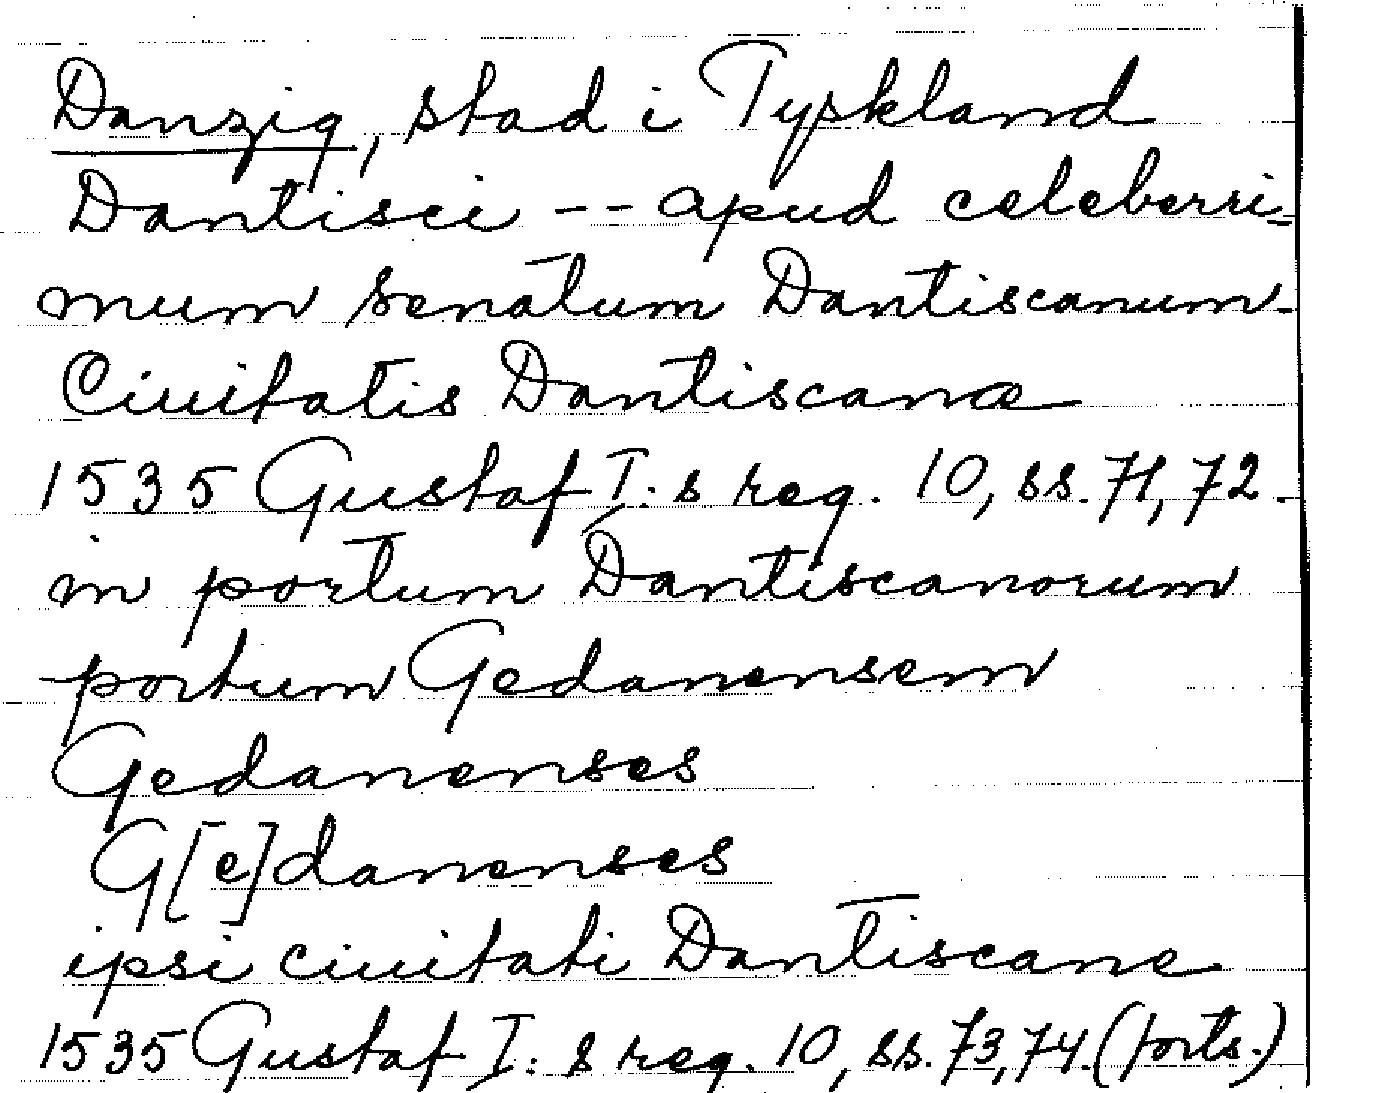 Danzig, stad i Tyskland
Dantisci -- apud celeberri=
mum senatum Dantiscanum-
Ciuitatis Dantiscanæ
1535 Gustaf I:s reg. 10, ss. 71, 72.
in portum Dantiscanorum
portum Gedanensem
Gedanenses
G[e]danenses
ipsi ciuitati Dantiscane
1535 Gustaf I:s reg. 10, ss. 73, 74. (forts.)